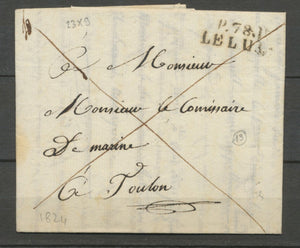 23x9
P.78.P
LELUC
A Monsieur
Monsieur le Comissaire
De marine
A Toulon
19
1824